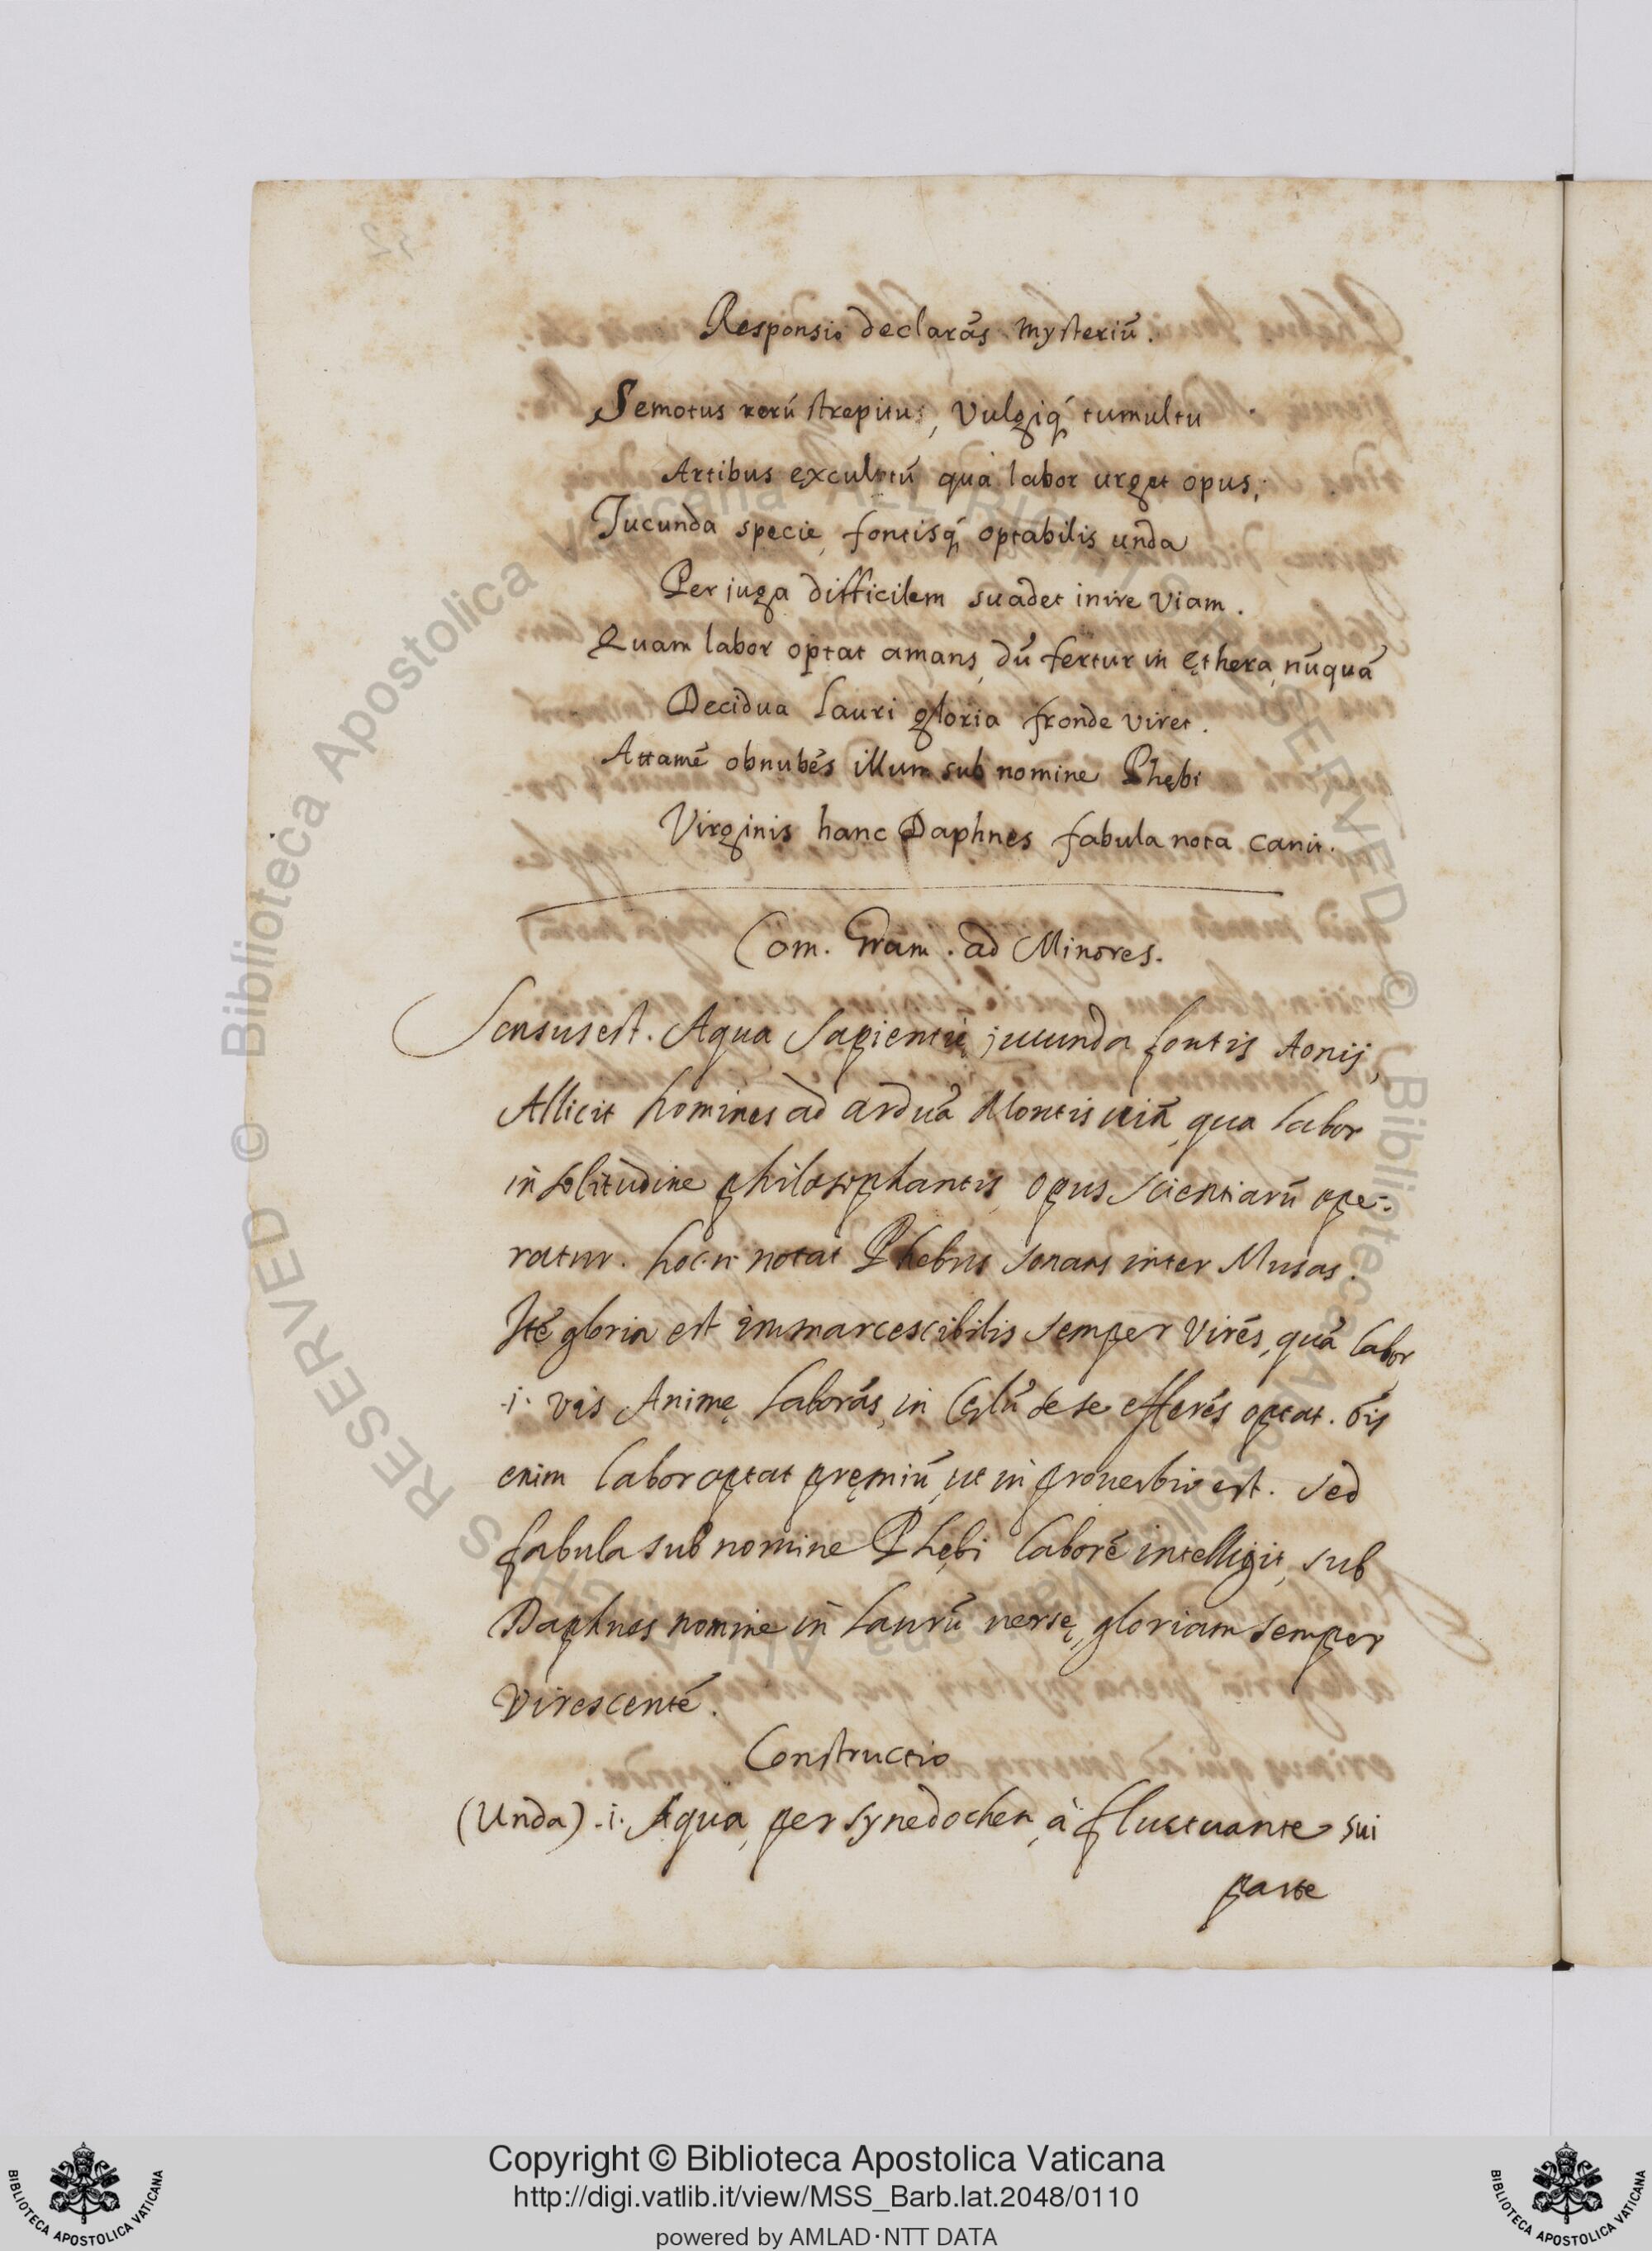 Responsio declarãs mysteriũ.
Semotus rerũ strepitu, Vulgiq́ tumultu
Artibus excultũ quà labor urget opus,
Jucunda specie, fontisq́ optabilis unda
Per juga difficilem suadet inire viam.
Quam labor optat amans, dũ fertur in ęthera, nũquã
Decidua lauri gloria fronde viret.
Attamẽ obnubẽs illum sub nomine Phębi
Virginis hanc Daphnes fabula nota canit.
Com. Gram. ad Minores.
Sensus est. Aqua Sapientię jucunda fontis Aonij,
Allicit homines ad arduã Montis uiã, qua labor
in solitudine philosophantis, opus scientiarũ ope-
ratur. hoc .n. notat Phebus sonans inter Musas.
Itẽ gloria est immarcescibilis semper virẽs, quã labor
.i. vis Animę laborãs, in Cęlũ sese efferẽs optat. õis
enim labor optat pręmiũ, ut in prouerbio est. Sed
fabula sub nomine Phębi laborẽ intelligit, sub
Daphnes nomine in laurũ versę, gloriam semper
virescentẽ.
Constructio
(Unda) .i. Aqua, per synedochen, à fluctuante sui
parte
© Biblioteca Apostolica Vaticana ALL RIGHTS RESERVED
© Biblioteca Apostolica Vaticana ALL RIGHTS RESERVED
BIBLIOTECA APOSTOLICA VATICANA
Copyright © Biblioteca Apostolica Vaticana
http://digi.vatlib.it/view/MSS_Barb.lat.2048/0110
powered by AMLAD·NTT DATA
BIBLIOTECA APOSTOLICA VATICANA